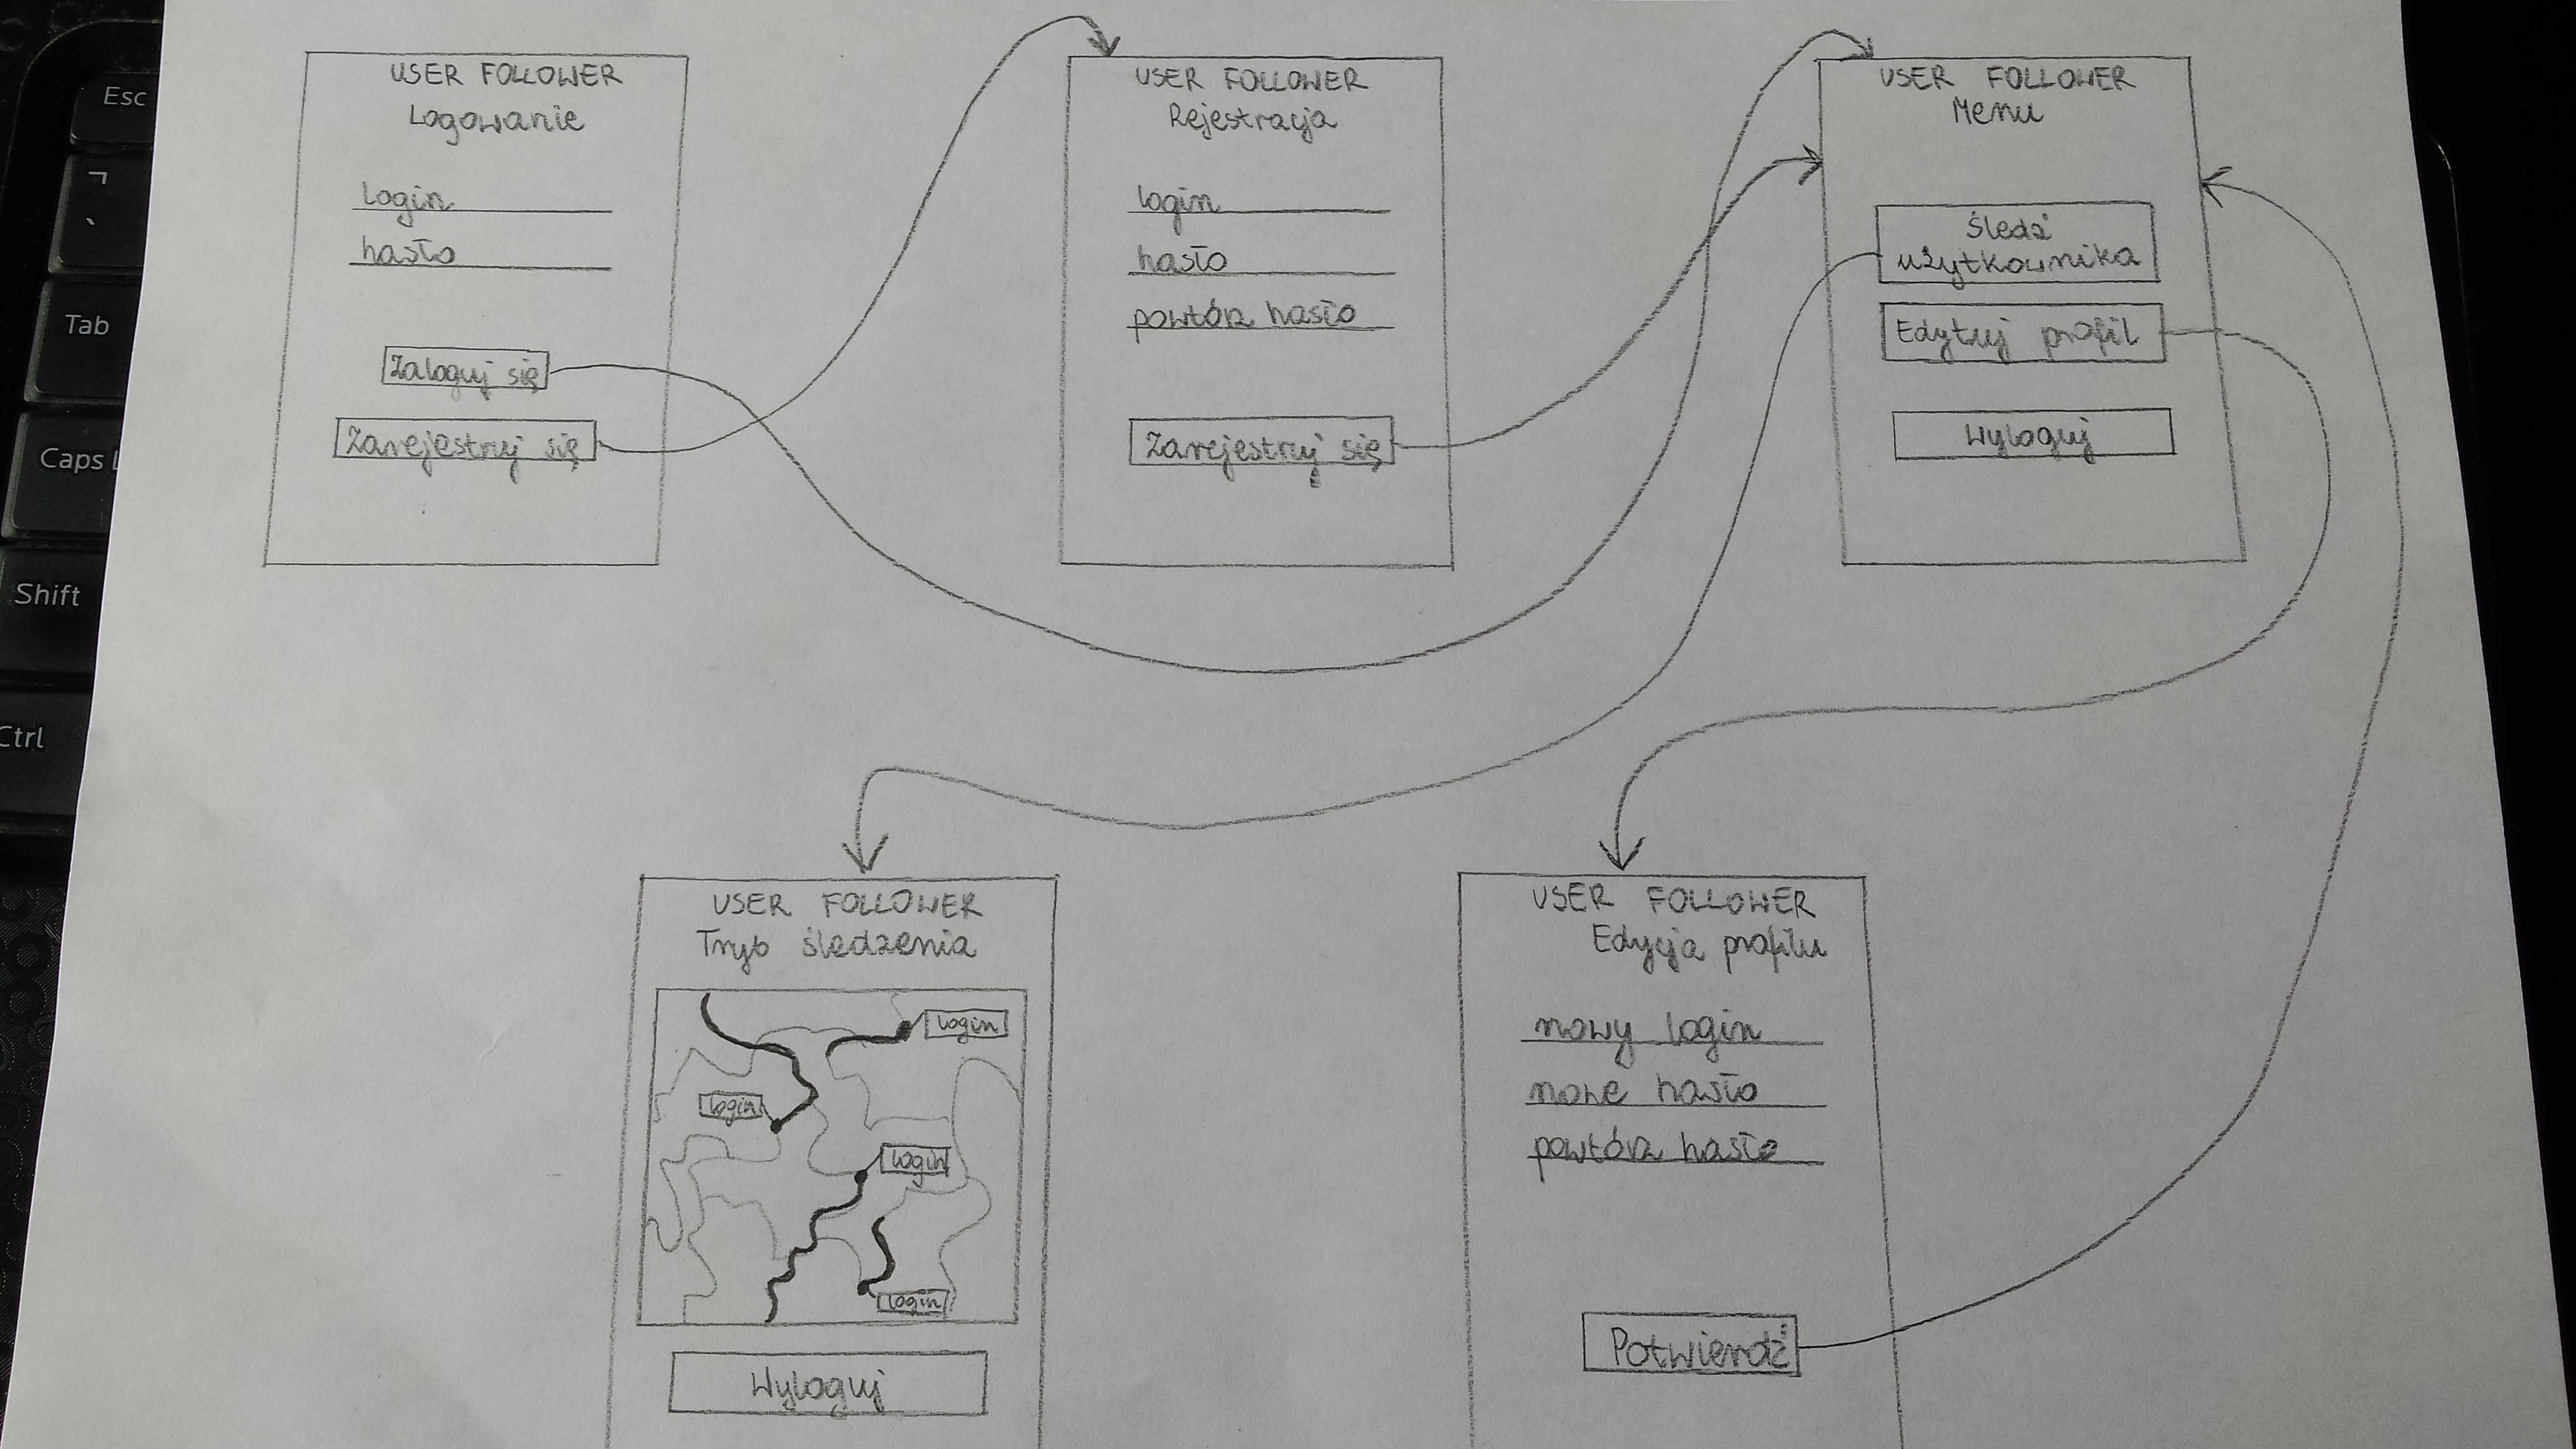 USER FOLLOWER
Logowanie
login
hasło
Zaloguj się
Zarejestruj się
USER FOLLOWER
Rejestracja
login
hasło
powtórz hasło
Zarejestruj się
USER FOLLOWER
Menu
Śledź
użytkownika
Edytuj profil
Wyloguj
USER FOLLOWER
Tryb śledzenia
login
login
login
login
Wyloguj
USER FOLLOWER
Edycja profilu
nowy login
nowe hasło
powtórz hasło
Potwierdź
Esc
¬
`
Tab
Caps L
Shift
Ctrl